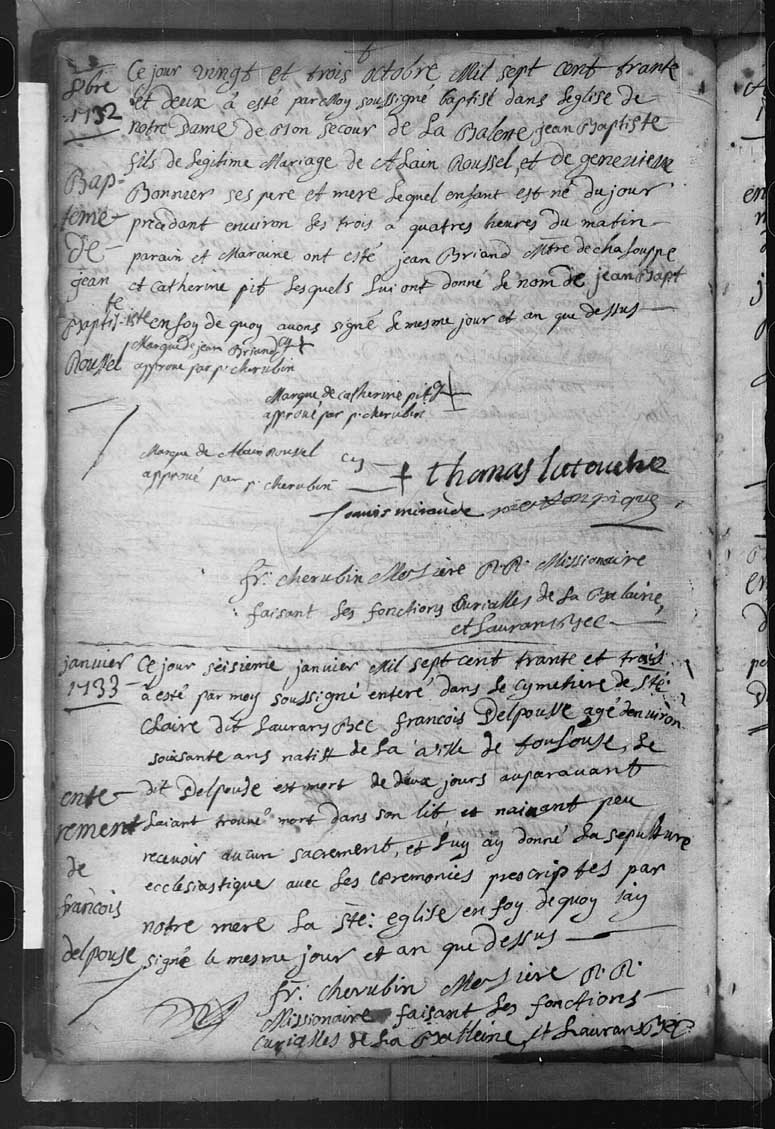 8bre
1732
Ce jour vingt et trois octobre Mil sept cent trante
et deux à esté par Moy soussigné baptisé dans leglise de
notre dame de Bon secour de La Balene, jean Baptiste
fils de legitime Mariage de Alain Roussel, et de genevieve
Bonnier ses pere et mere lequel enfant est né du jour
précédant environ les trois a quatres heures du matin
parain et Maraine ont esté jean Briand Mtre de chalouppe
et Catherine pit lesquels lui ont donné le nom de jean Bapt
iste en foy de quoy avons signé le mesme jour et an que dessus
Bap-
teme
de
jean
Baptiste
Roussel
Marque de jean Briand cy +
approuve par p. cherubin
Marque de catherine pit
approué par p. cherubin
Marque de Alain Roussel cy +
approué par p. cherubin
thomas latouche
fr. cherubin R. R. Missionaire
faisant les fonctions Curialles de La Balaine,
et Laurans Bec
janvier
1733
Ce jour seisieme janvier Mil sept cent trante et trois
à esté par moy soussigné enteré dans le cymetiere de Ste
Claire dit Laurans Bec francois Delpouse agé denviron
soissante ans natif de la ville de toulouse, le
dit Delpouse est mort de deux jours auparavant
Laiant trouné mort dans son lit et naiuant peu
recevoir aucun sacrement, et luy ay donné la sepulture
ecclesiastique avec les ceremonies prescriptes par
notre mere la Ste: eglise en foy de quoy jay
signé le mesme jour et an que dessus
ente-
rement
de
francois
delpouse
fr. cherubin R. R.
Missionaire faisant les fonctions
curialles de La Balleine, et Laurans Bec